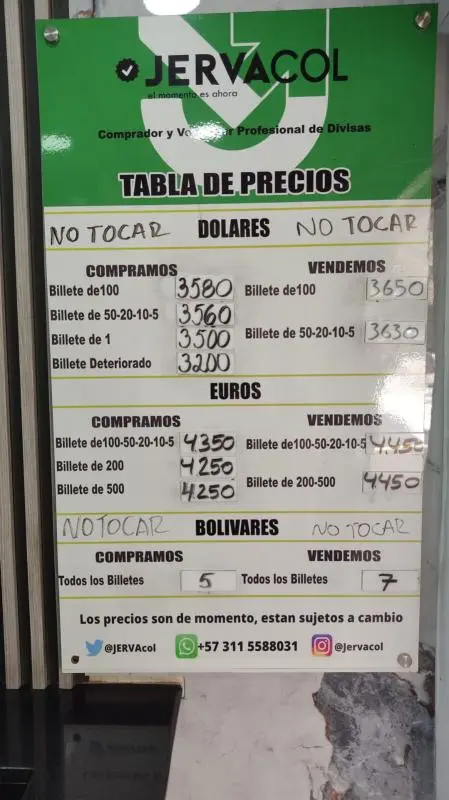 JERVACOL
el momento es ahora
Comprador y Vendedor Profesional de Divisas
TABLA DE PRECIOS
NO TOCAR DOLARES NO TOCAR
COMPRAMOS VENDEMOS
Billete de100 3580 Billete de100 3650
Billete de 50-20-10-5 3560
Billete de 50-20-10-5 3630
Billete de 1 3500
Billete Deteriorado 3200
EUROS
COMPRAMOS VENDEMOS
Billete de100-50-20-10-5 4350 Billete de100-50-20-10-5 4.450
Billete de 200 4250
Billete de 500 4250 Billete de 200-500 4450
NO TOCAR BOLIVARES NO TOCAR
COMPRAMOS VENDEMOS
Todos los Billetes 5 Todos los Billetes 7
Los precios son de momento, estan sujetos a cambio
@JERVAcol +57 311 5588031 @Jervacol